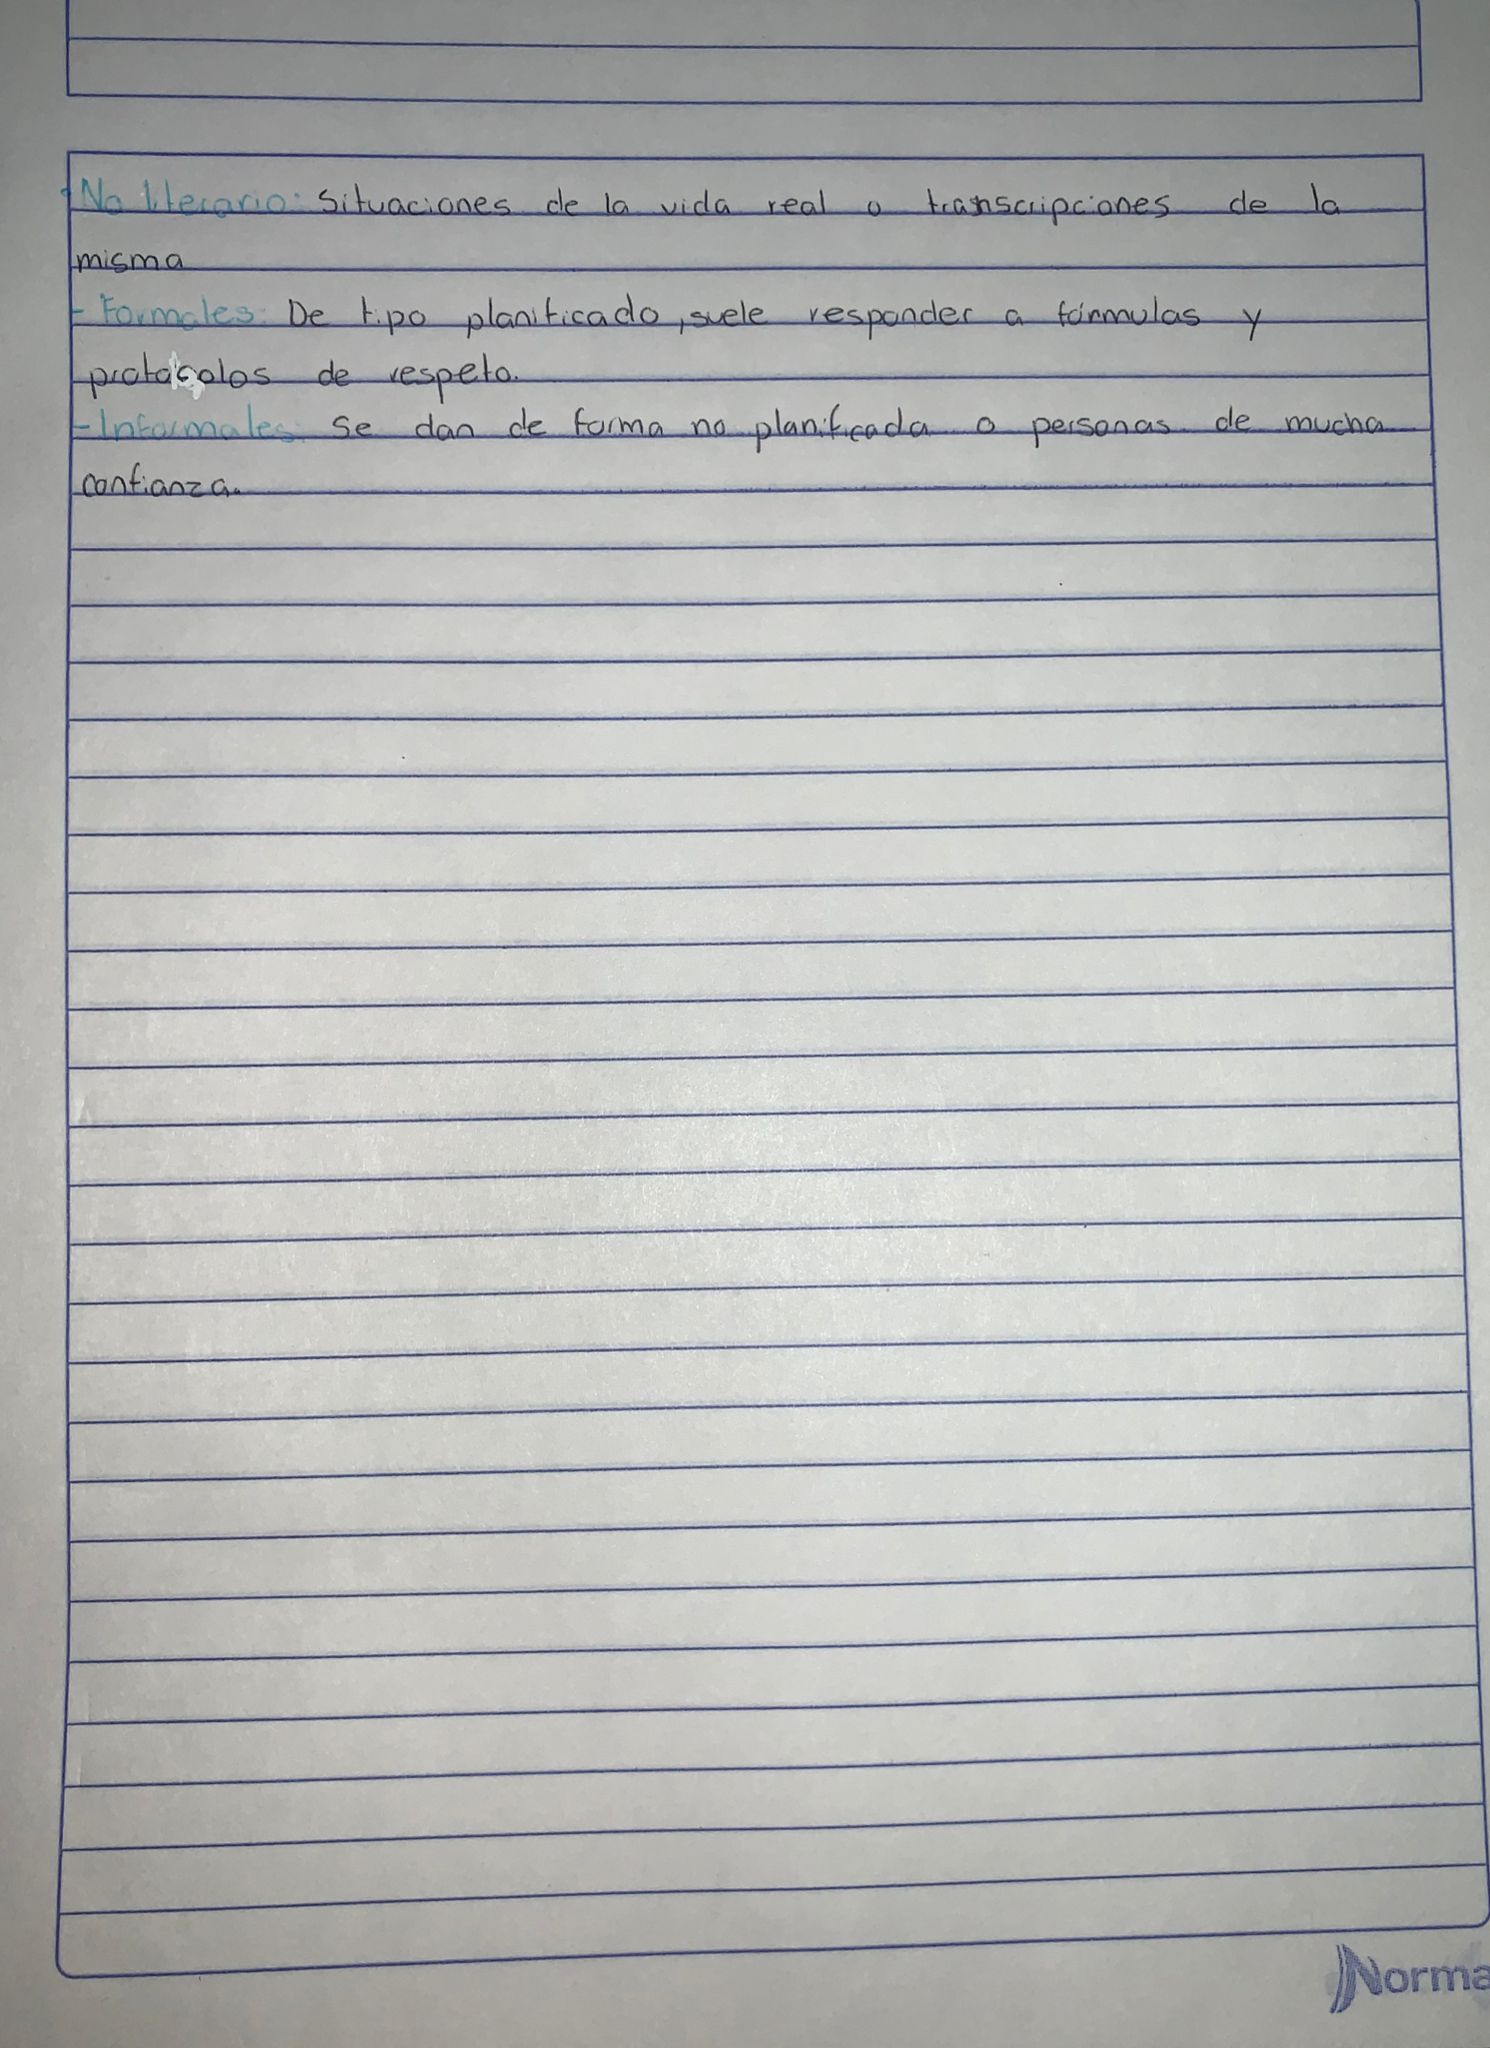 • No literario: Situaciones de la vida real o transcripciones de la
misma
- Formales: De tipo planificado, suele responder a fórmulas y
protocolos de respeto.
- Informales: Se dan de forma no planificada o personas de mucha
confianza.
Norma